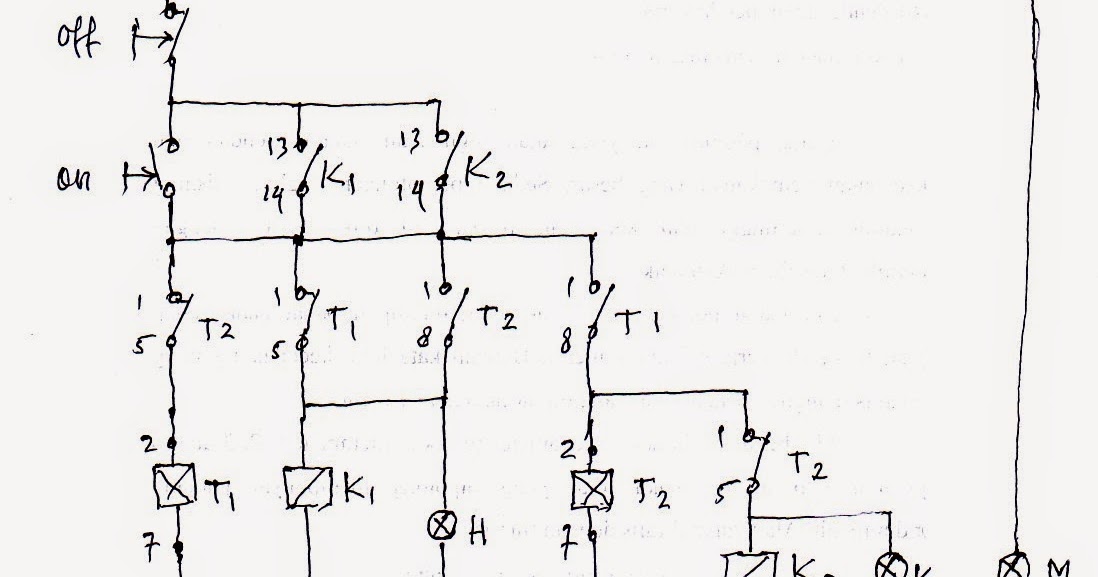 Off
On
13
14
K1
13
14
K2
1
5
T2
1
5
T1
1
8
T2
1
8
T1
2
T1
7
K1
H
2
T2
7
1
5
T2
K
K
M